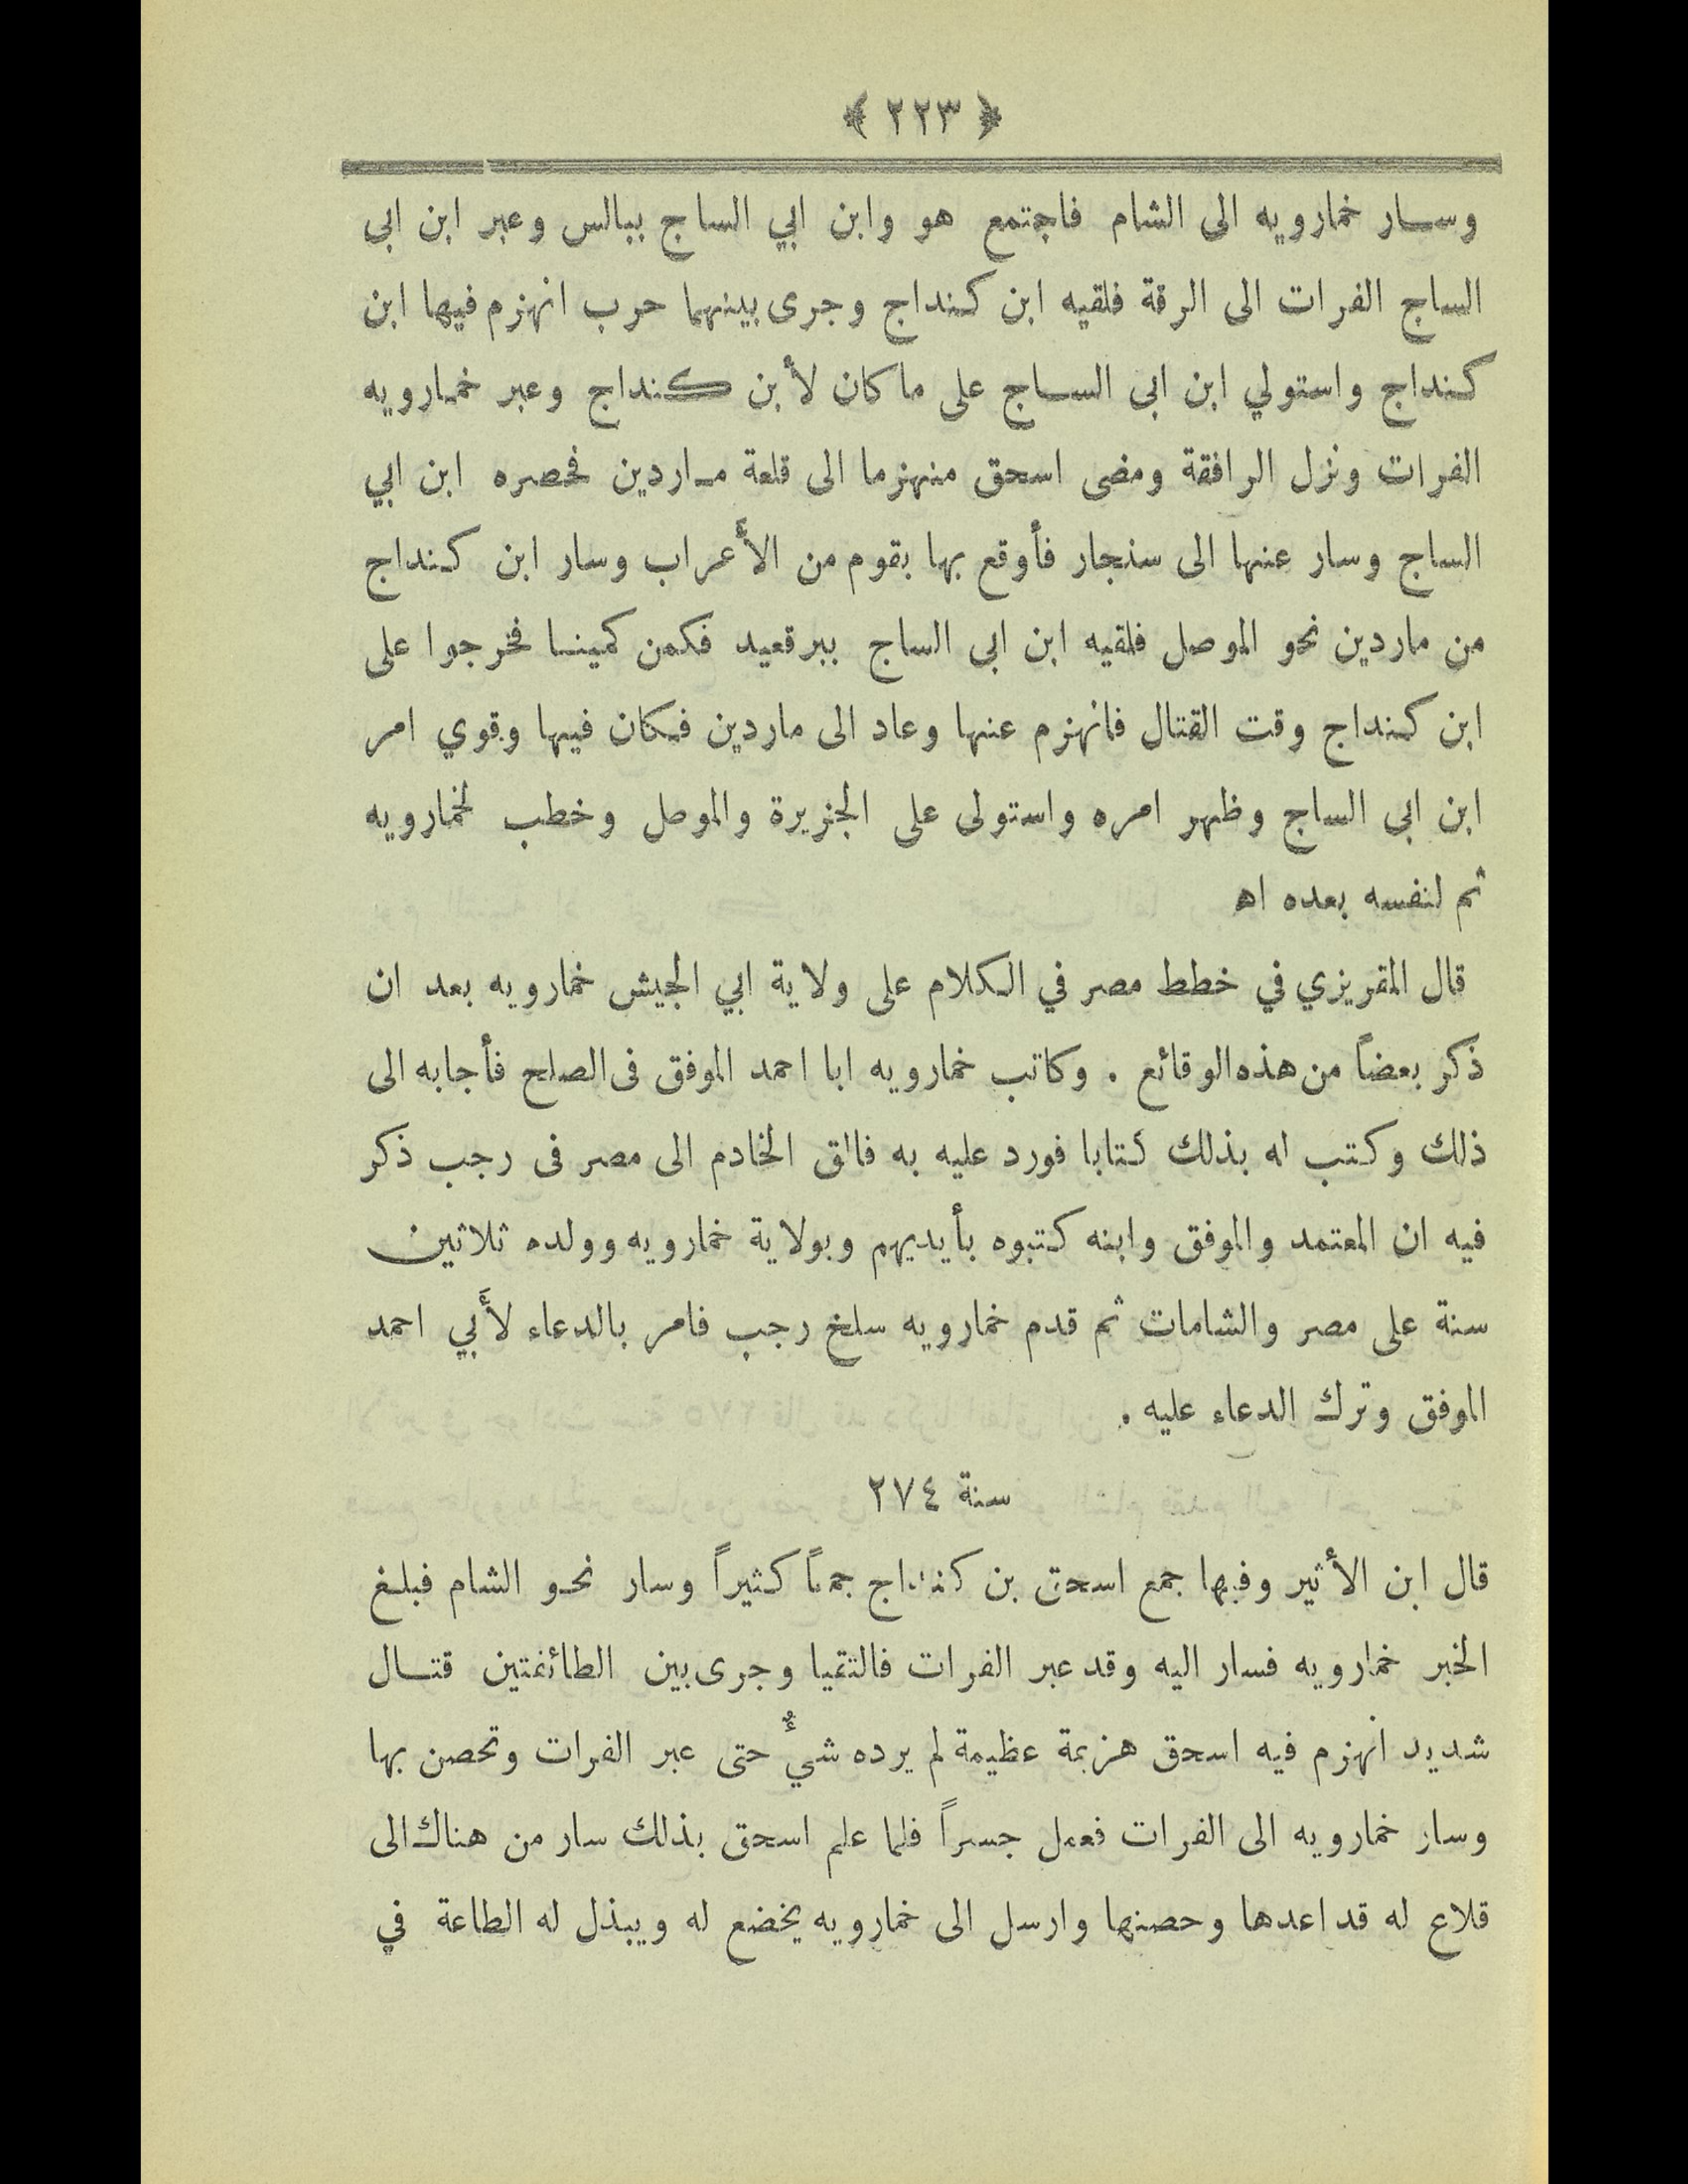 ﴿ ٢٢٣ ﴾
وسار خمارويه الى الشام فاجتمع هو وابن ابي الساج ببالس وعبر ابن ابى
الساج الفرات الى الرقة فلقيه ابن كنداج وجرى بينهما حرب انهزم فيها ابن
كنداج واستولي ابن ابى الساج على ما كان لأبن كنداج وعبر خمارويه
الفرات ونزل الرافقة ومضى اسحق منهزما الى قلعة ماردين فحصره ابن ابي
الساج وسار عنها الى سنجار فأوقع بها بقوم من الأعراب وسار ابن كنداج
من ماردين نحو الموصل فلقيه ابن ابى الساج ببرقعيد فكمن كمينا فخرجوا على
ابن كنداج وقت القتال فانهزم عنها وعاد الى ماردين فكان فيها وقوي امر
ابن ابى الساج وظهر امره واستولى على الجزيرة والموصل وخطب لخمارويه
ثم لنفسه بعده اه
قال المقريزي في خطط مصر في الكلام على ولاية ابي الجيش خمارويه بعد ان
ذكر بعضاً من هذه الوقائع . وكاتب خمارويه ابا احمد الموفق فى الصلح فأجابه الى
ذلك وكتب له بذلك كتابا فورد عليه به فائق الخادم الى مصر فى رجب ذكر
فيه ان المعتمد والموفق وابنه كتبوه بأيديهم وبولاية خمارويه وولده ثلاثين
سنة على مصر والشامات ثم قدم خمارويه سلخ رجب فامر بالدعاء لأبي احمد
الموفق وترك الدعاء عليه .
سنة ٢٧٤
قال ابن الأثير وفيها جمع اسحق بن كنداج جمعاً كثيراً وسار نحو الشام فبلغ
الخبر خمارويه فسار اليه وقد عبر الفرات فالتقيا وجرى بين الطائفتين قتال
شديد انهزم فيه اسحق هزيمة عظيمة لم يرده شيءٌ حتى عبر الفرات وتحصن بها
وسار خمارويه الى الفرات فعمل جسراً فلما علم اسحق بذلك سار من هناك الى
قلاع له قد اعدها وحصنها وارسل الى خمارويه يخضع له ويبذل له الطاعة في